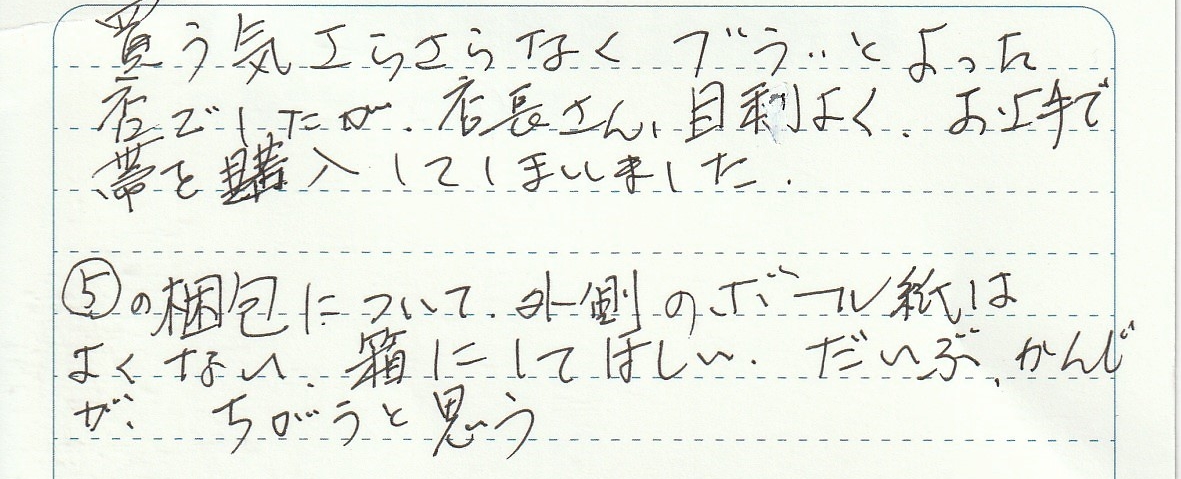 買う気さらさらなく ブラッとよった
店でしたが、店長さん、目利よく、お上手で
帯を購入してしまいました.
⑤の梱包について、外側のボール紙は
よくない、箱にしてほしい. だいぶ、かんじ
が、ちがうと思う